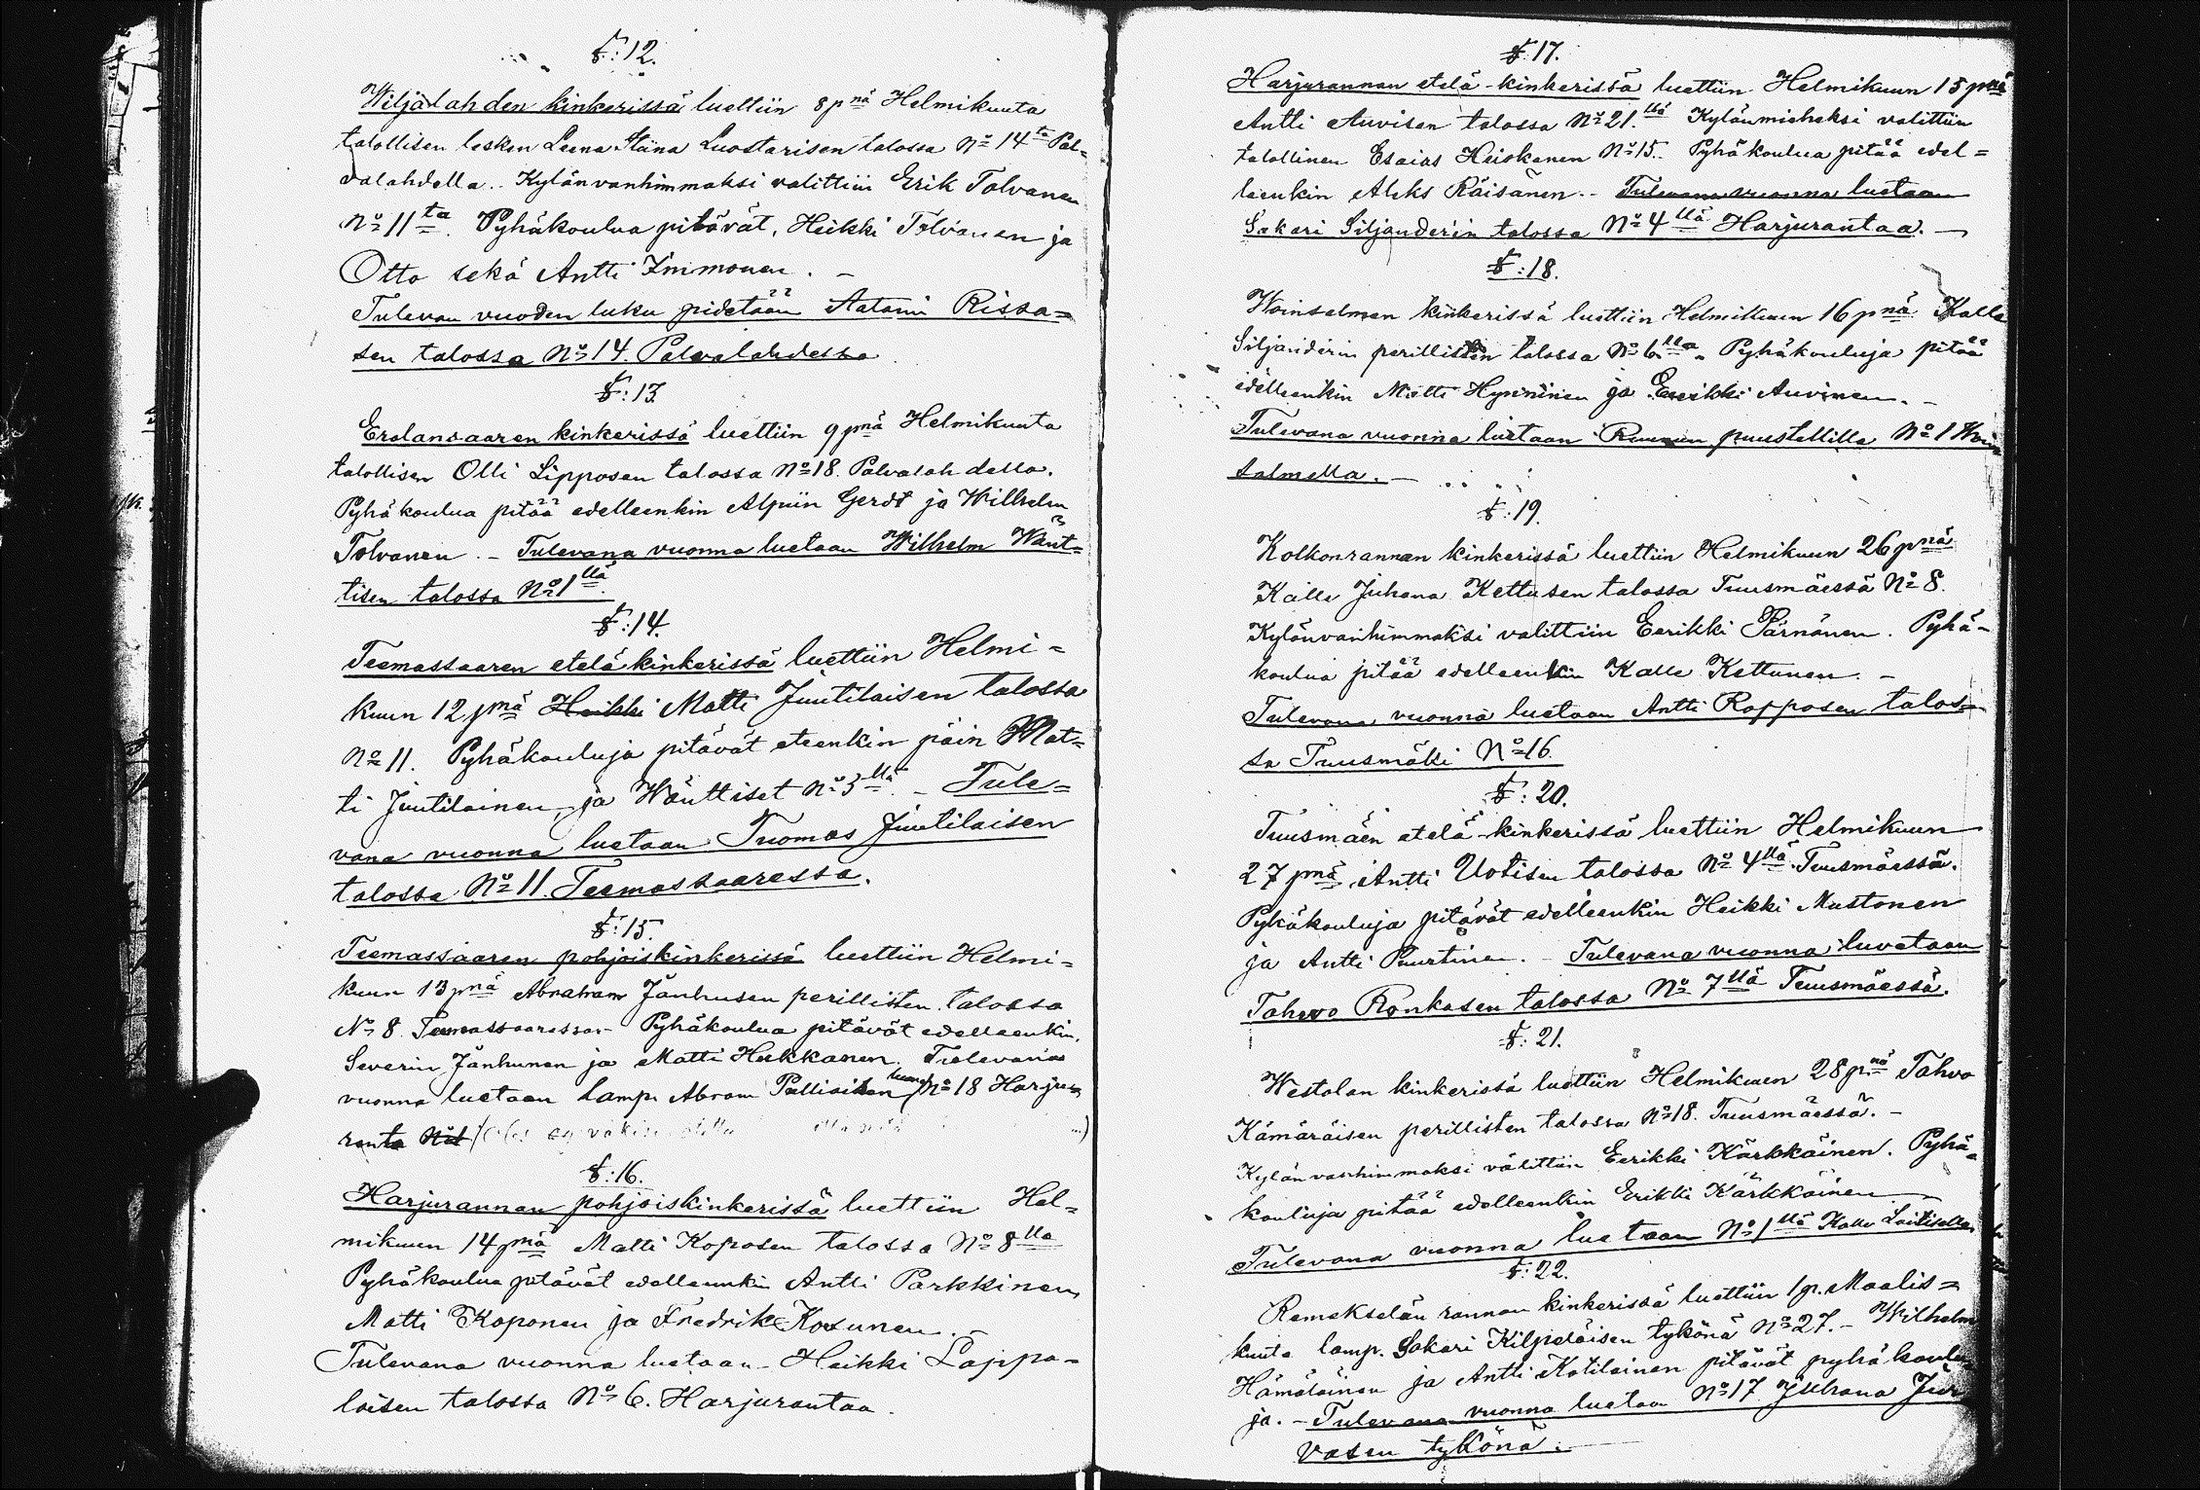 §:12.
Wiljalahden kinkerissä luettiin 8 pnä Helmikuuta
talollisen lesken Leena Stiina Luostarisen talossa No 14ta Pal=
valahdella. Kylänvanhimmaksi valittiin Erik Tolvanen
No 11ta. Pyhäkoulua pitävät, Heikki Tolvanen ja
Otto sekä Antti Immonen. –
Tulevan vuoden luku pidetään Aatami Rissa=
sen talossa No 14. Palvalahdessa.
§:13.
Erolansaaren kinkerissä luettiin 9 pnä Helmikuuta
talollisen Olli Lipposen talossa No 18. Palvalahdella.
Pyhäkoulua pitää edelleenkin Alpiin Gerdt ja Wilhelm
Tolvanen. – Tulevana vuonna luetaan Wilhelm Wänt=
tisen talossa No 1llä.
§:14.
Teemassaaren eteläkinkerissä luettiin Helmi=
kuun 12 pnä Heikki Matti Juutilaisen talossa
No 11. Pyhäkouluja pitävät eteenkin päin Mat=
ti Juutilainen, ja Wänttiset No 3llä. – Tule=
vana vuonna luetaan Tuomas Juutilaisen
talossa No 11. Teemassaaressa.
§:15.
Teemassaaren pohjoiskinkerissä luettiin Helmi=
kuun 13 pnä Abraham Jänhusen perillisten talossa
No 8 Teemassaaressa. – Pyhäkoulua pitävät edelleenkin,
Severin Jänhunen ja Matti Hukkanen. Tulevana
vuonna luetaan Lamp. Abram Pallisiken luona No 18 Harju=
ranta
§:16.
Harjurannan pohjoiskinkerissä luettiin Hel=
mikuun 14 pnä Matti Koposen talossa No 8lla
Pyhäkoulua pitävät edelleenkin Antti Parkkinen,
Matti Koponen ja Fredrik Kosunen. –
Tulevana vuonna luetaan Heikki Lappa=
laisen talossa No 6. Harjurantaa.
§:17.
Harjurannan etelä-kinkerissä luettiin Helmikuun 15 pnä
Antti Auvisen talossa No 21.llä Kylänmieheksi valittiin
talollinen Esaias Heiskanen No 15. Pyhäkoulua pitää edel=
leenkin Aleks Räisänen. – Tulevana vuonna luetaan
Sakari Siljanderin talossa No 4llä Harjurantaa. –
§:18.
Woinselmen kinkerissä luettiin Helmikuun 16 pnä Kalle
Siljanderin perillisten talossa No 6lla. Pyhäkouluja pitää
edelleenkin Matti Hynninen ja Eerikki Auvinen. –
Tulevana vuonna luetaan Ruunun puustellilla No 1 Woin
salmella. –
§:19.
Kolkonrannan kinkerissä luettiin Helmikuun 26 pnä
Kalle Juhana Kettusen talossa Tuusmäessä No 8.
Kylänvanhimmaksi valittiin Eerikki Pärnänen. Pyhä-
koulua pitää edelleenkin Kalle Kettunen. –
Tulevana vuonna luetaan Antti Ropposen talos-
sa Tuusmäki No 16.
§:20.
Tuusmäen etelä-kinkerissä luettiin Helmikuun
27 pnä Antti Uotisen talossa No 4llä Tuusmäessä.
Pyhäkouluja pitävät edelleenkin Heikki Mustonen
ja Antti Puurtinen. – Tulevana vuonna luvetaan
Tahvo Ronkasen talossa No 7llä Tuusmäessä.
§:21.
Westolan kinkerissä luettiin Helmikuun 28 pnä Tahvo
Kämäräisen perillisten talossa No 18. Tuusmäessä. –
Kylänvanhimmaksi valittiin Eerikki Kärkkäinen. Pyhä=
kouluja pitää edelleenkin Erikki Kärkkäinen. –
Tulevana vuonna luetaan No 1llä Kalle Laitisella
§:22.
Remekselän rannan kinkerissä luettiin 1 p. Maalis=
kuuta lamp. Sakari Kilpeläisen tykönä No 27. – Wilhelm
Hämäläinen ja Antti Kotilainen pitävät pyhäkoulu=
ja. – Tulevana vuonna luetaan No 17 Juhana Jur
vasen tykönä. –